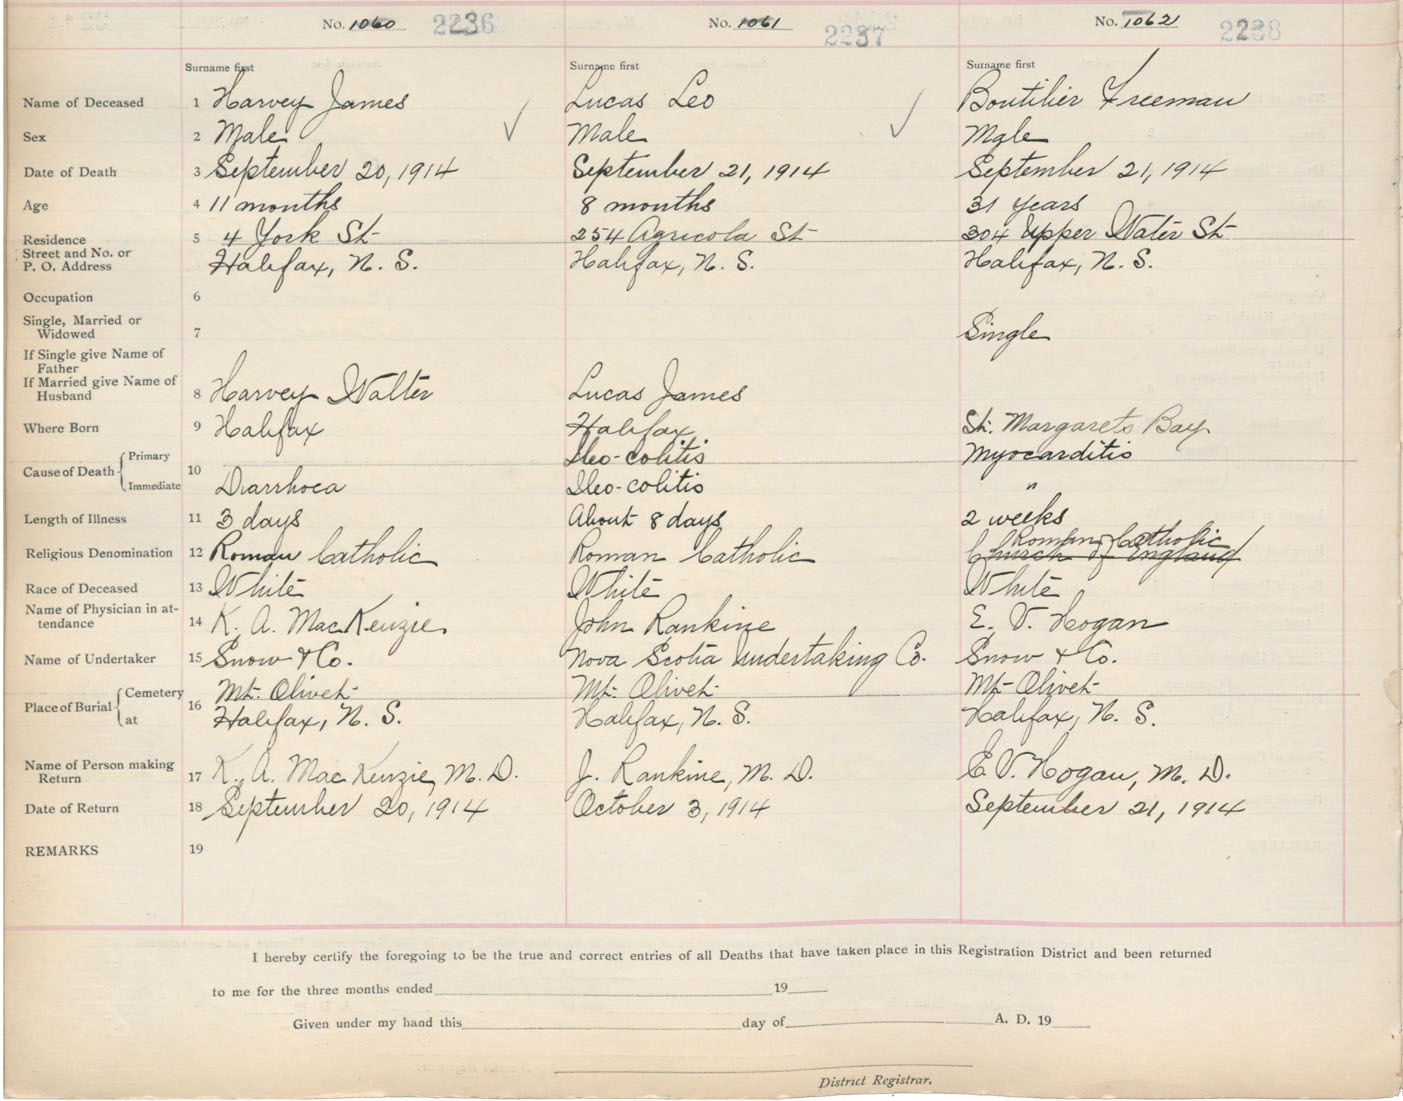 No. 1060 2236 No. 1061 2237 No. 1062 2238
Surname first Surname first Surname first
Name of Deceased 1 Harvey James Lucas Leo Boutilier Freeman
Sex 2 Male Male Male
Date of Death 3 September 20, 1914 September 21, 1914 September 21, 1914
Age 4 11 months 8 months 31 years
Residence 5 4 York St 254 Agricola St 304 Upper Water St
Street and No. or
P. O. Address Halifax, N. S. Halifax, N. S. Halifax, N. S.
Occupation 6
Single, Married or
Widowed 7 Single
If Single give Name of
Father
If Married give Name of
Husband 8 Harvey Walter Lucas James
Where Born 9 Halifax Halifax St. Margarets Bay
Cause of Death Primary 10 Ileo-colitis Myocarditis
Immediate Diarrhoea Ileo-colitis "
Length of Illness 11 3 days About 8 days 2 weeks
Roman Catholic
Religious Denomination 12 Roman Catholic Roman Catholic Church of England
Race of Deceased 13 White White White
Name of Physician in at-
tendance 14 K. A. MacKenzie John Rankine E. V. Hogan
Name of Undertaker 15 Snow & Co. Nova Scotia Undertaking Co. Snow & Co.
Place of Burial Cemetery 16 Mt. Olivet Mt. Olivet Mt. Olivet
at Halifax, N. S. Halifax, N. S. Halifax, N. S.
Name of Person making
Return 17 K. A. MacKenzie, M. D. J. Rankine, M. D. E. V. Hogan, M. D.
Date of Return 18 September 20, 1914 October 3, 1914 September 21, 1914
REMARKS 19
I hereby certify the foregoing to be the true and correct entries of all Deaths that have taken place in this Registration District and been returned
to me for the three months ended 19
Given under my hand this day of A. D. 19
District Registrar.